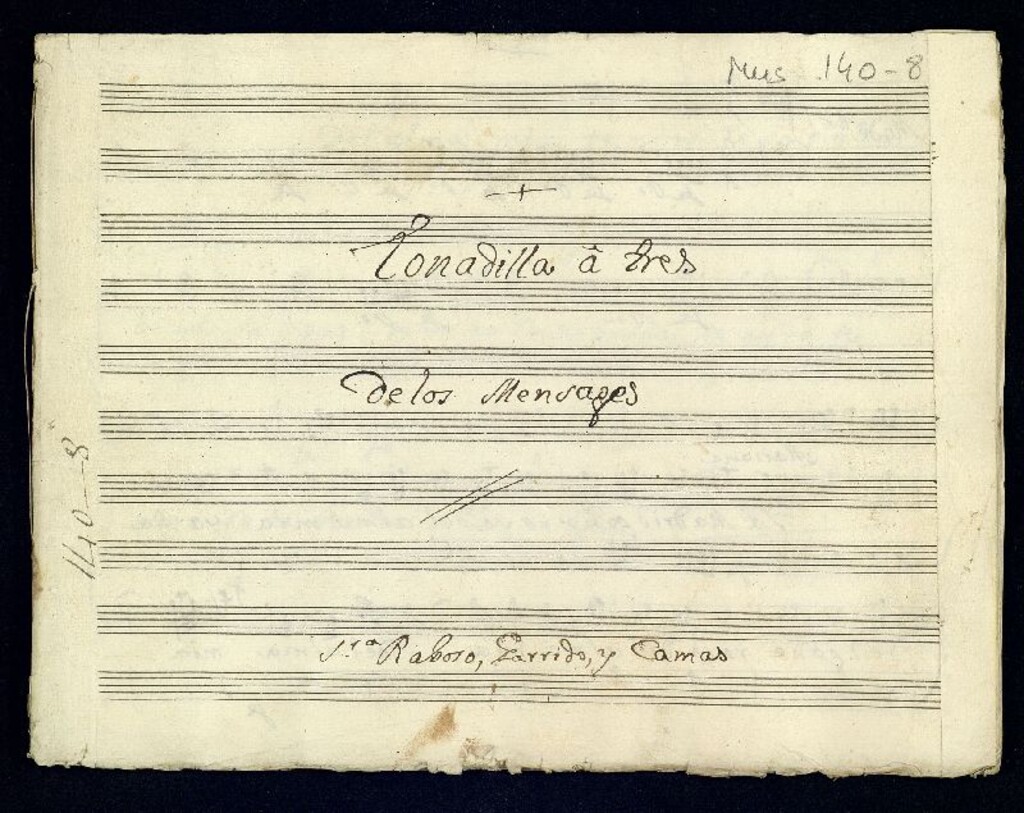 Mus 140-8
+
Tonadilla â tres
De los Mensages
Sr.ª Raboso, Garrido, y Camas
140-8